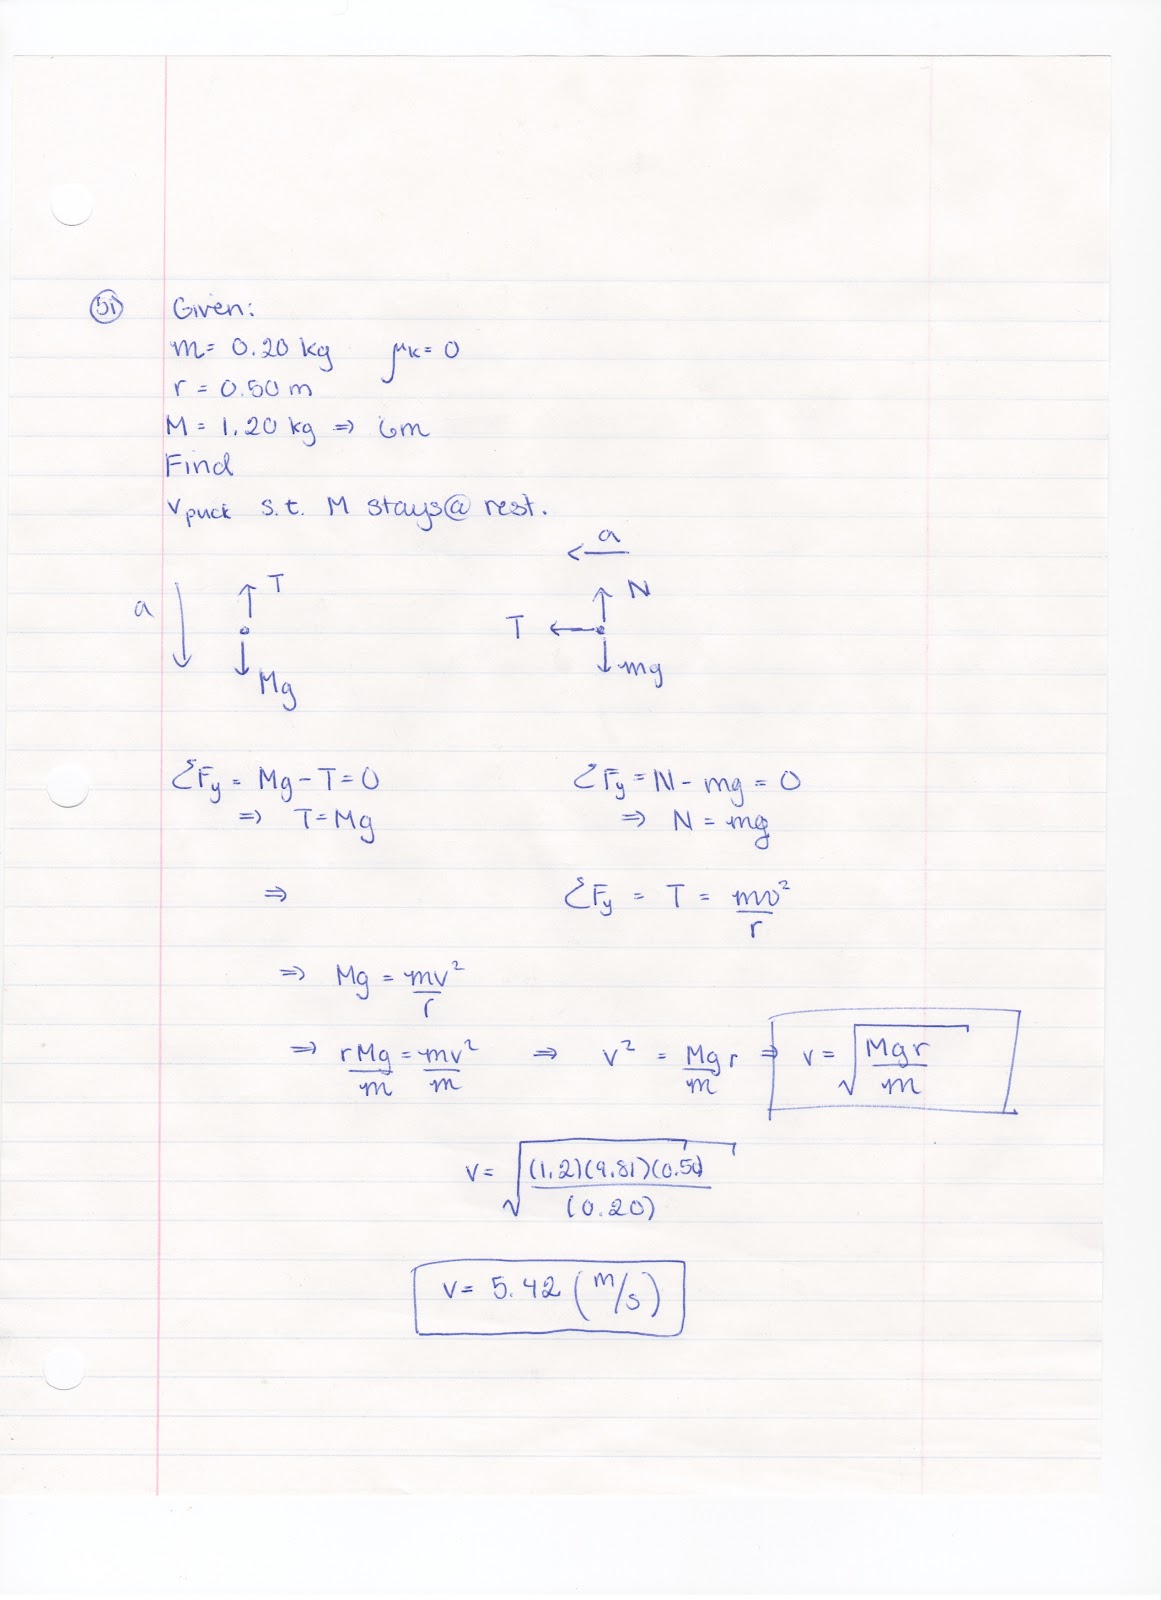 51 Given:
m = 0.20 kg μk = 0
r = 0.50 m
M = 1.20 kg ⇒ 6m
Find
Vpuck s.t. M stays @ rest.
a
T N
a T
Mg mg
ΣFy = Mg - T = 0 ΣFy = N - mg = 0
⇒ T = Mg ⇒ N = mg
⇒ ΣFy = T = mv²/r
⇒ Mg = mv²/r
⇒ rMg/m = mv²/m ⇒ v² = Mg/m r ⇒ v = √(Mgr/m)
v = √((1.2)(9.81)(0.50)/(0.20))
v = 5.42 (m/s)